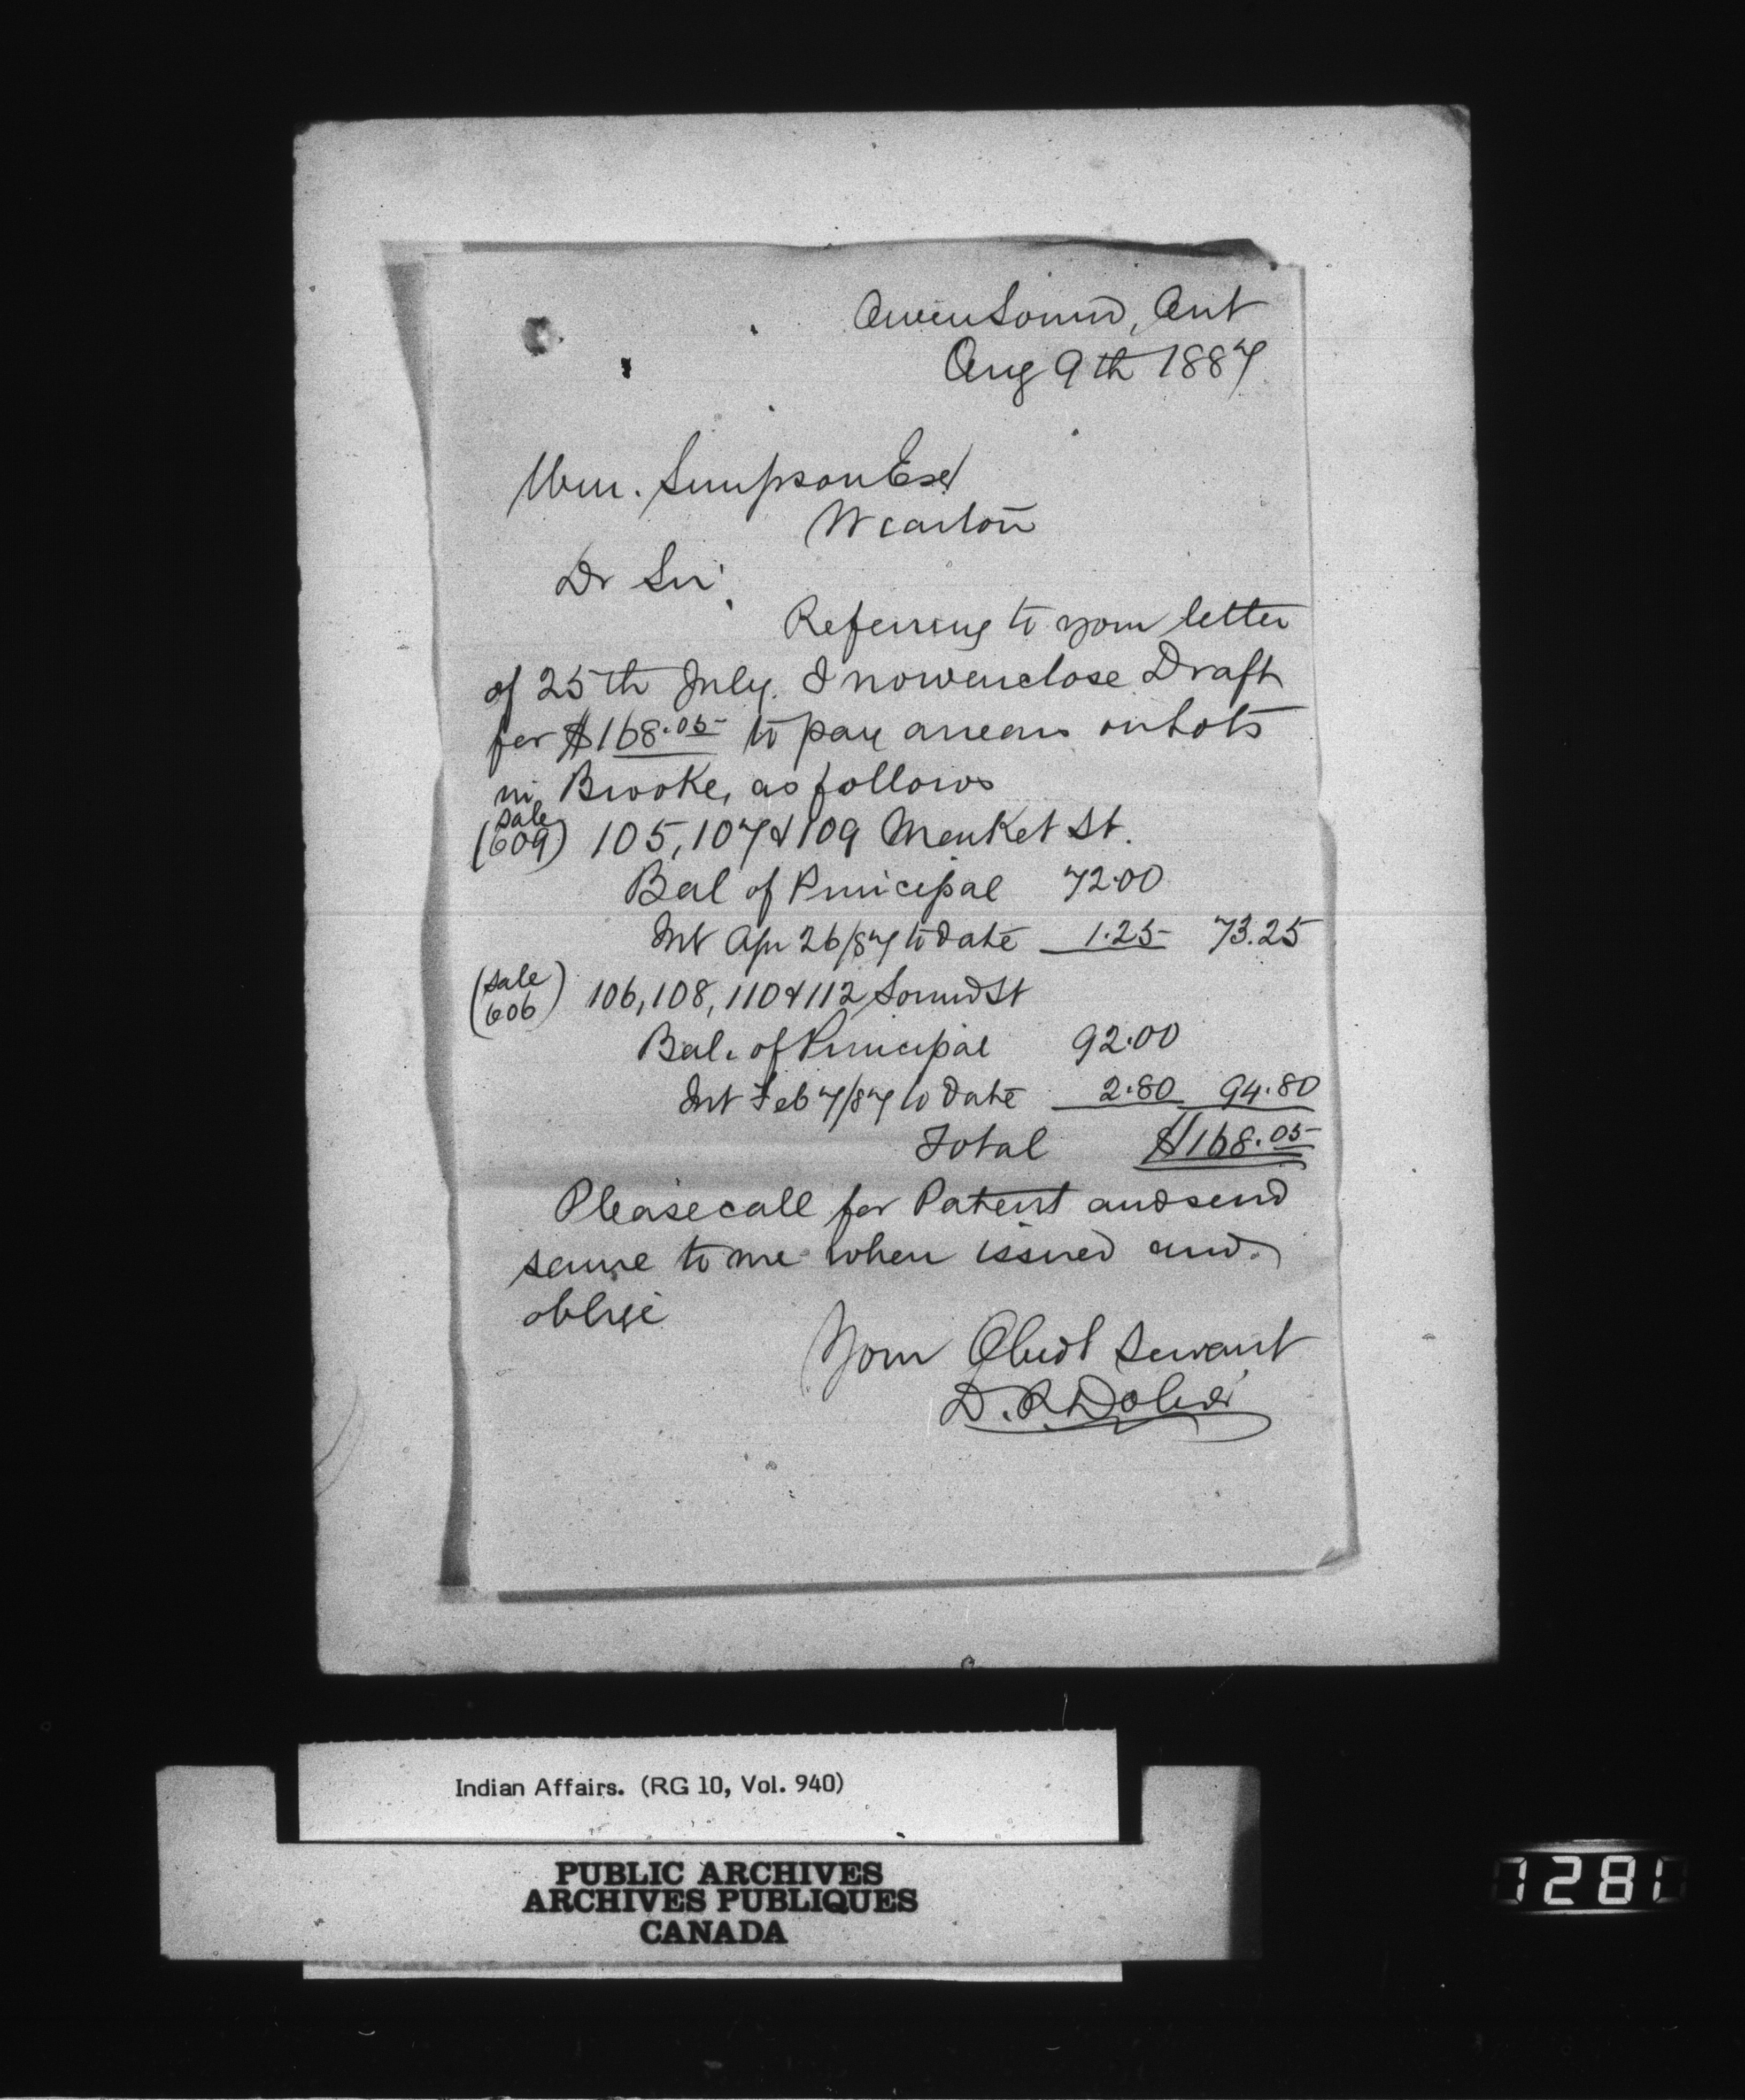 Owen Sound, Ont
Aug 9th 1887
Wm. Simpson Esq
Wiarton
Dr Sir,
Referring to your letter
of 25th July. I now enclose Draft
for $168.05 to pay arrears on Lots
in Brooke, as follows
(Sale 609) 105, 107 & 109 Market St.
Bal of Principal 72.00
Int Apr 26/87 to date 1.25 73.25
(Sale 606) 106, 108, 110 & 112 Sound St
Bal. of Principal 92.00
Int Feb 7/87 to date 2.80 94.80
Total $168.05
Please call for Patent and send
same to me when issued and
oblige
Your Obedt Servant
D. R. Dobie
Indian Affairs. (RG 10, Vol. 940)
PUBLIC ARCHIVES
ARCHIVES PUBLIQUES
CANADA
1281